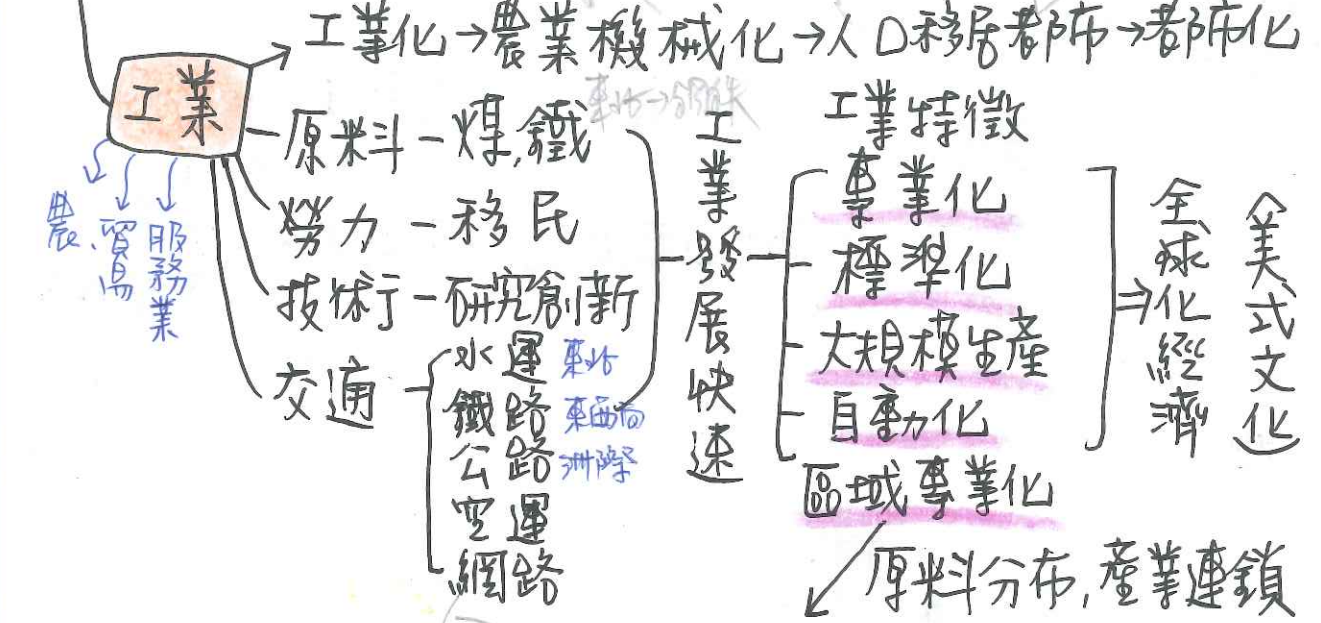 工業化→農業機械化→人口移居都市→都市化
工業
原料－煤,鐵
勞力－移民
技術－研究創新
交通
水運 東北
鐵路 東西向
公路 洲際
空運
網路
農、貿易
服務業
工業發展快速
工業特徵
專業化
標準化
大規模生產
自動化
區域專業化
原料分布,產業連鎖
⇒全球化經濟
〈美式文化